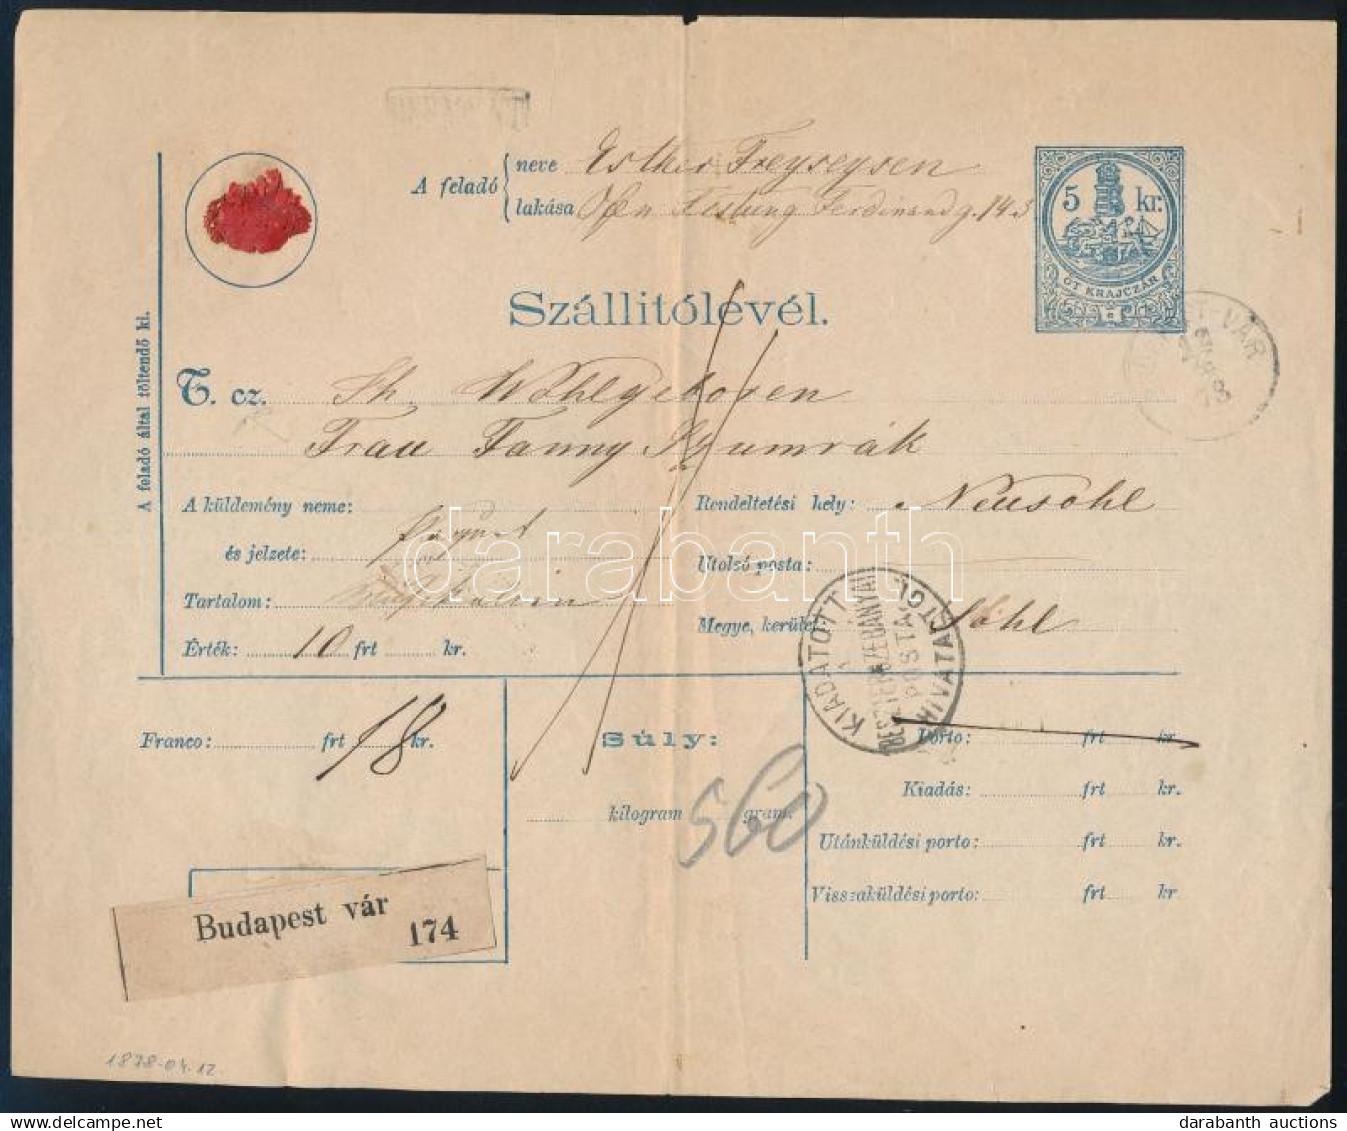 A feladó
neve Esther Freyseysen
lakása Ofen Festung Ferdinand g. 143
5 kr.
ÖT KRAJCZÁR
Szállitólevél.
VÁR
T. cz. Sh. Wohlgeboren
Frau Fanny Szumrák
A feladó által töltendő ki.
A küldemény neme:
és jelzete:
Rendeltetési hely: Neusohl
Utolsó posta:
Tartalom:
Megye, kerület: Sohl
Érték: 10 frt kr.
darabanth
KIADATOTT
BESZTERCZEBÁNYAI
POSTA
HIVATAL
Franco: frt 18 kr.
Súly:
Porto: frt kr.
Kiadás: frt kr.
kilogram 560 gram.
Utánküldési porto: frt kr.
Visszaküldési porto: frt kr
Budapest vár
174
1878-04.12
darabanth auctions